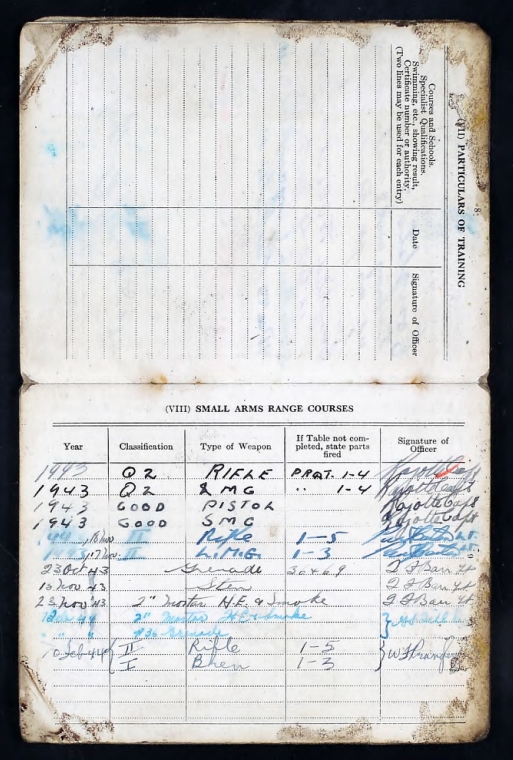 -8-
(VII) PARTICULARS OF TRAINING
Courses and Schools.
Specialist Qualifications.
Swimming, etc., showing result,
Certificate number or authority.
(Two lines may be used for each entry)
Date
Signature of Officer
(VIII) SMALL ARMS RANGE COURSES
Year Classification Type of Weapon If Table not completed, state parts fired Signature of Officer
1943 Q2 RIFLE PRAT. 1-4
1943 Q2 LMG " 1-4
1943 GOOD PISTOL
1943 GOOD SMG
II Rifle 1-5
II L.M.G 1-3
23 Oct 43 Grenade 36 & 69
Nov 43 Sten
23 Nov 43 2" Mortar H.E. & Smoke
2" Mortar H.E. & Smoke
Grenade
10 Feb 44 II Rifle 1-5
I Bren 1-3